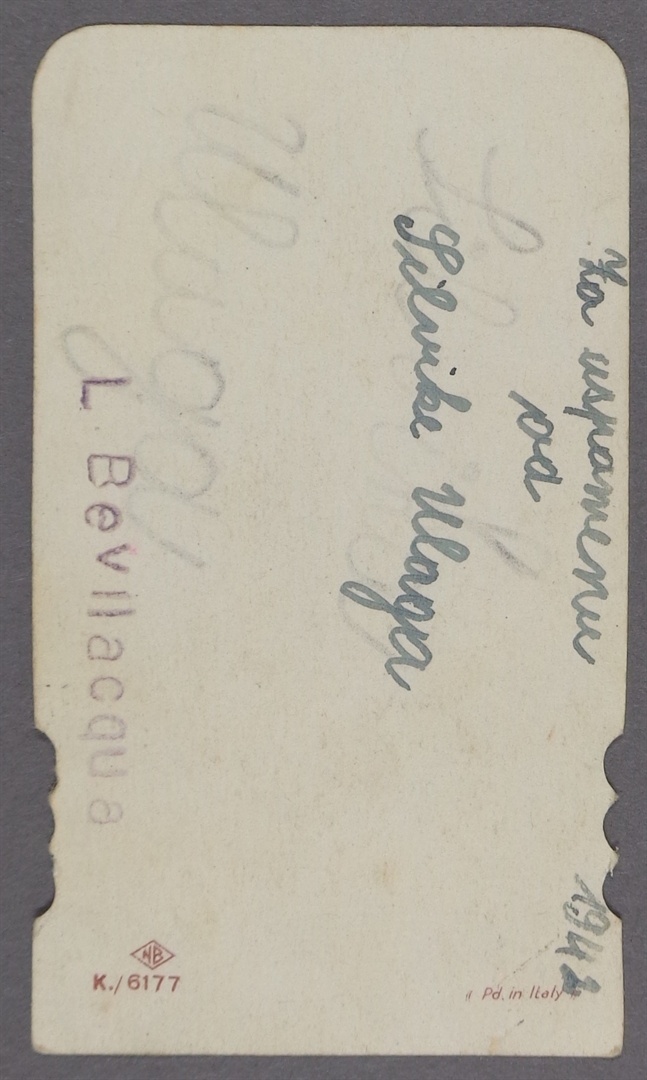 Za uspomenu
od
Silvike Ulaga
1942
L. Bevilacqua
NB
K./6177
« Pd. in Italy »